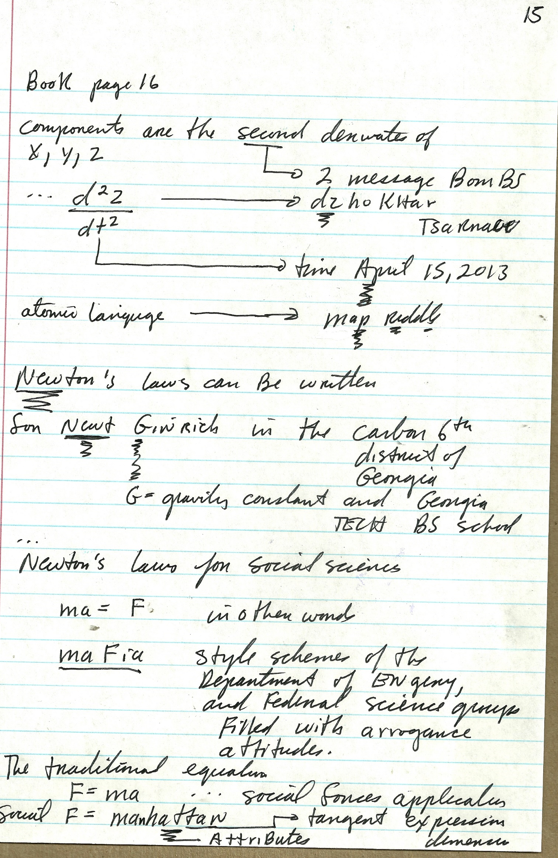 15
Book page 16
components are the second derivates of
X, Y, Z
2 message BomBS
... d²z dzhoKHar
dt² Tsarnaev
time April 15, 2013
atomic languge map riddle
Newton's laws can Be written
Son Newt GiNRich in the carbon 6th
district of
Georgia
G = gravity constant and Georgia
TECH BS school
...
Newton's laws for social science
ma = F. in other words
maFia style schemes of the
Department of ENgery,
and Federal science groups
Filled with arrogance
attitudes.
The traditional equation
F = ma ... social forces application
Social F = manhattan tangent expression
Attributes dimension